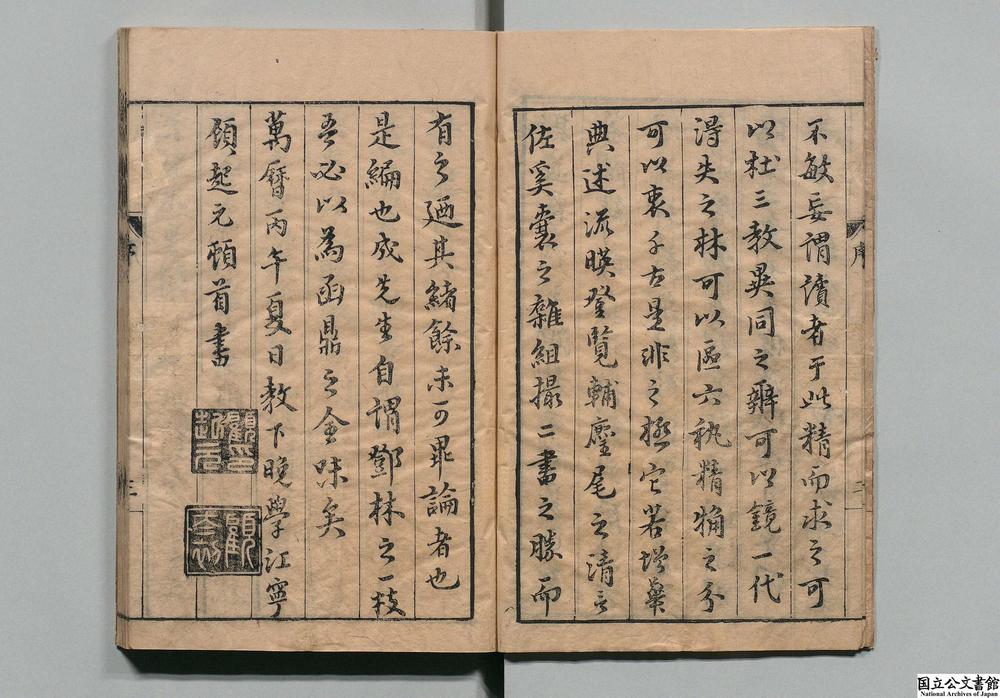 不敏妄謂讀者于此精而求之可
以杜三教異同之辯可以鏡一代
得失之林可以區六秇精觕之分
可以衷千古是非之極它若增藻
典述流暎登覽輔麈尾之清言
佐奚囊之雜組撮二書之勝而
有之廼其緒餘未可畢論者也
是編也成先生自謂鄧林之一枝
吾必以為函鼎之全味矣
萬曆丙午夏日教下晚學江寧
顧起元頓首書
顧起元印
序
三
序
国立公文書館
National Archives of Japan